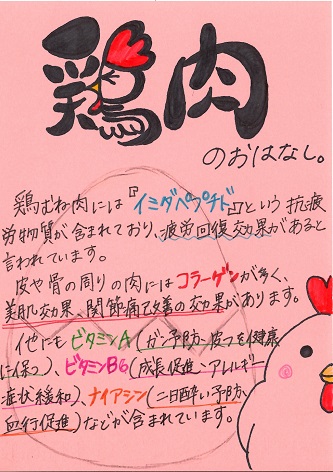 鶏肉
のおはなし。
鶏むね肉には『イミダペプチド』という抗疲
労物質が含まれており、疲労回復効果があると
言われています。
皮や骨の周りの肉にはコラーゲンが多く、
美肌効果、関節痛改善の効果があります。
他にもビタミンA(ガン予防・皮フを健康
に保つ)、ビタミンB6(成長促進・アレルギー
症状緩和)、ナイアシン(二日酔い予防、
血行促進)などが含まれています。